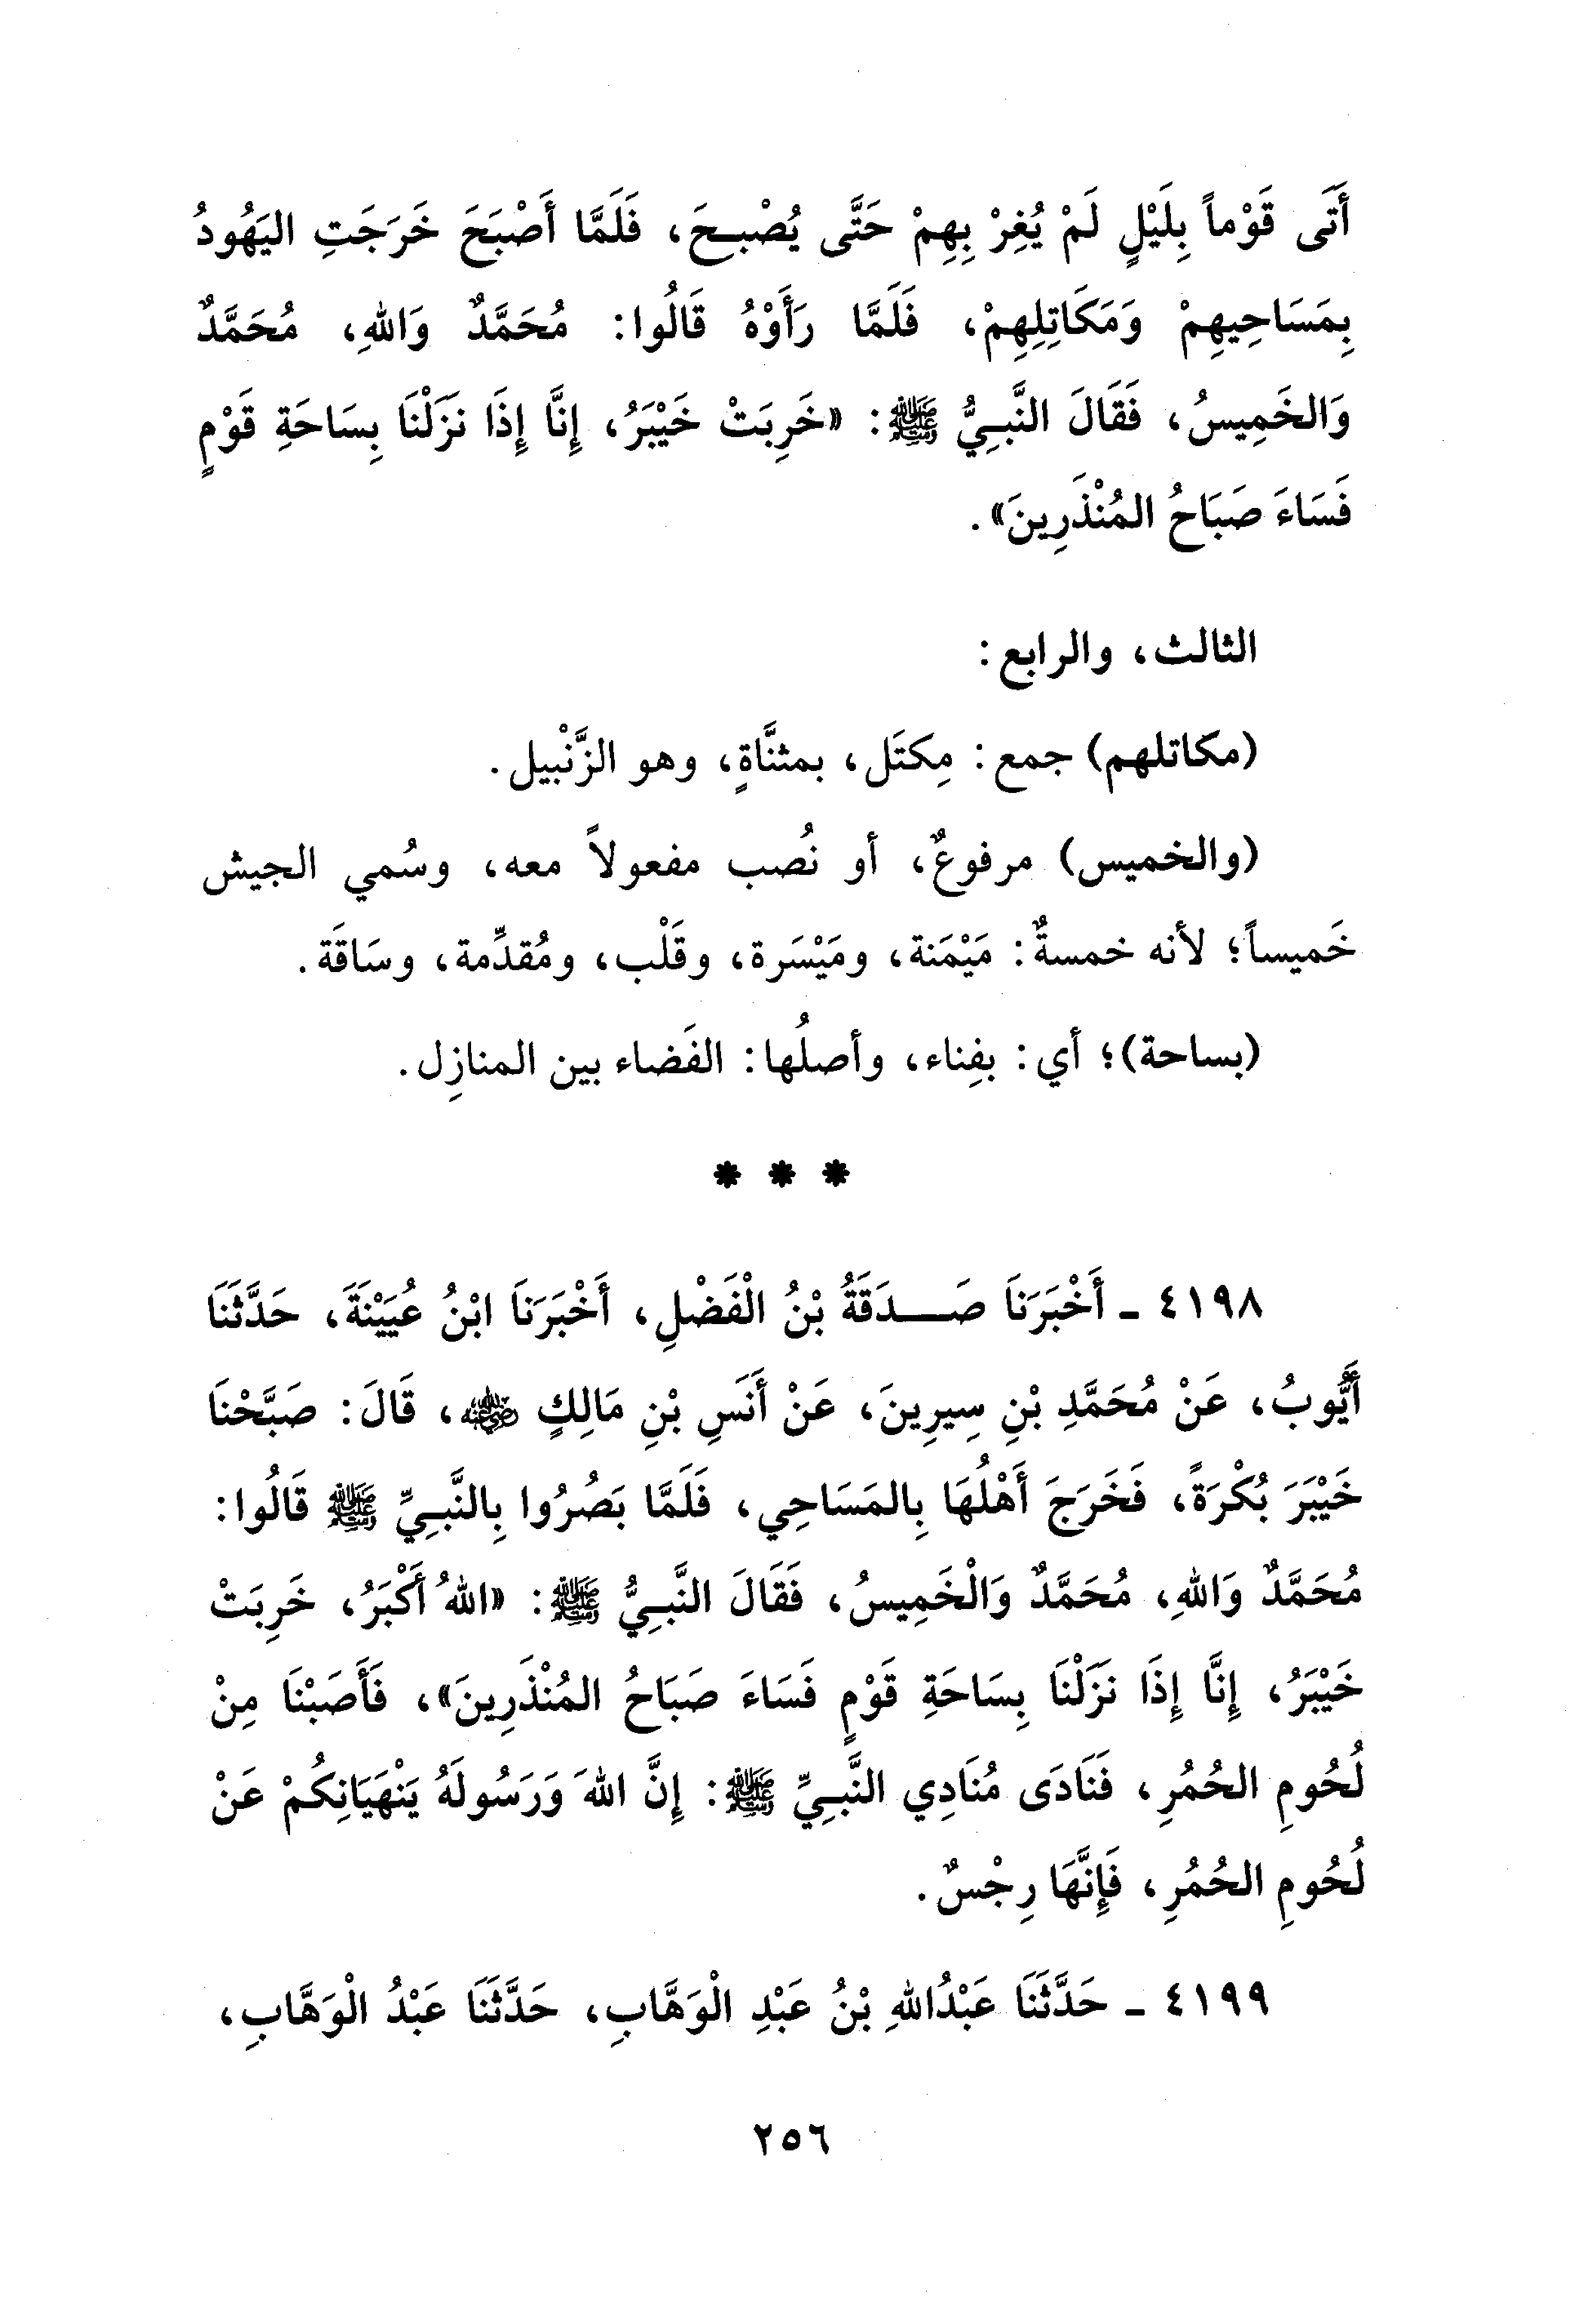 أَتَى قَوْماً بِلَيْلٍ لَمْ يُغِرْ بِهِمْ حَتَّى يُصْبِحَ، فَلَمَّا أَصْبَحَ خَرَجَتِ اليَهُودُ
بِمَسَاحِيهِمْ وَمَكَاتِلِهِمْ، فَلَمَّا رَأَوْهُ قَالُوا: مُحَمَّدٌ وَاللهِ، مُحَمَّدٌ
وَالخَمِيسُ، فَقَالَ النَّبِيُّ ﷺ: «خَرِبَتْ خَيْبَرُ، إِنَّا إِذَا نَزَلْنَا بِسَاحَةِ قَوْمٍ
فَسَاءَ صَبَاحُ المُنْذَرِينَ».
الثالث، والرابع:
(مكاتلهم) جمع: مِكتَل، بمثنَّاةٍ، وهو الزَّنْبيل.
(والخميس) مرفوعٌ، أو نُصب مفعولاً معه، وسُمي الجيش
خَميساً؛ لأنه خمسةٌ: مَيْمَنة، ومَيْسَرة، وقَلْب، ومُقدِّمة، وسَاقَة.
(بساحة)؛ أي: بفِناء، وأصلُها: الفَضاء بين المنازِل.
* * *
٤١٩٨ - أَخْبَرَنَا صَدَقَةُ بْنُ الْفَضْلِ، أَخْبَرَنَا ابْنُ عُيَيْنَةَ، حَدَّثَنَا
أَيُّوبُ، عَنْ مُحَمَّدِ بْنِ سِيرِينَ، عَنْ أَنَسِ بْنِ مَالِكٍ رضي الله عنه، قَالَ: صَبَّحْنَا
خَيْبَرَ بُكْرَةً، فَخَرَجَ أَهْلُهَا بِالمَسَاحِي، فَلَمَّا بَصُرُوا بِالنَّبِيِّ ﷺ قَالُوا:
مُحَمَّدٌ وَاللهِ، مُحَمَّدٌ وَالْخَمِيسُ، فَقَالَ النَّبِيُّ ﷺ: «اللهُ أَكْبَرُ، خَرِبَتْ
خَيْبَرُ، إِنَّا إِذَا نَزَلْنَا بِسَاحَةِ قَوْمٍ فَسَاءَ صَبَاحُ المُنْذَرِينَ»، فَأَصَبْنَا مِنْ
لُحُومِ الحُمُرِ، فَنَادَى مُنَادِي النَّبِيِّ ﷺ: إِنَّ اللهَ وَرَسُولَهُ يَنْهَيَانِكُمْ عَنْ
لُحُومِ الحُمُرِ، فَإِنَّهَا رِجْسٌ.
٤١٩٩ - حَدَّثَنَا عَبْدُاللهِ بْنُ عَبْدِ الْوَهَّابِ، حَدَّثَنَا عَبْدُ الْوَهَّابِ،
٢٥٦